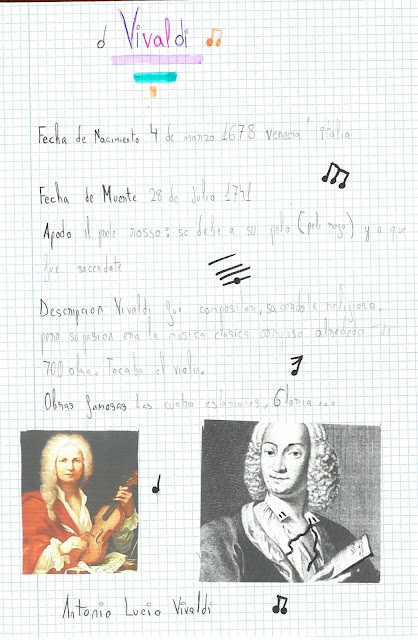 Vivaldi
Fecha de Nacimiento 4 de marzo 1678 Venecia Italia
Fecha de Muerte 28 de Julio 1741
Apodo il prete rosso: se debe a su pelo (pelo rojo) y a que
fue sacerdote
Descripcion Vivaldi fue compositor, sacerdote religioso,
pero su pasion era la musica clasica compuso alrededor de
700 obra. Tocaba el violin.
Obras famosas Las cuatro estaciones, Gloria...
Antonio Lucio Vivaldi